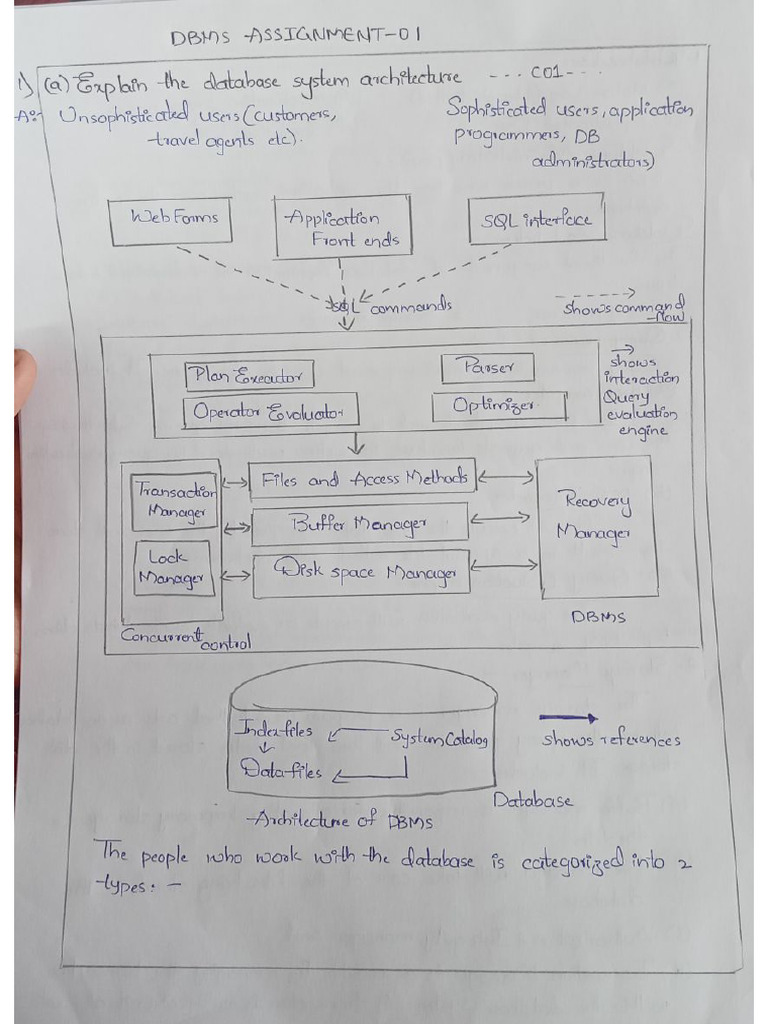 DBMS ASSIGNMENT-01
1) (a) Explain the database system architecture --- CO1---
A:- Unsophisticated users (customers,
travel agents etc).
Sophisticated users, application
programmers, DB
administrators)
Web Forms
Application
Front ends
SQL interface
SQL commands
shows command
flow
Plan Executor
Parser
Operator Evaluator
Optimizer
shows
interaction
Query
evaluation
engine
Transaction
Manager
Lock
Manager
Files and Access Methods
Buffer Manager
Disk space Manager
Recovery
Manager
Concurrent
control
DBMS
Index files
System Catalog
Data files
shows references
Database
Architecture of DBMS
The people who work with the database is categorized into 2
types: -